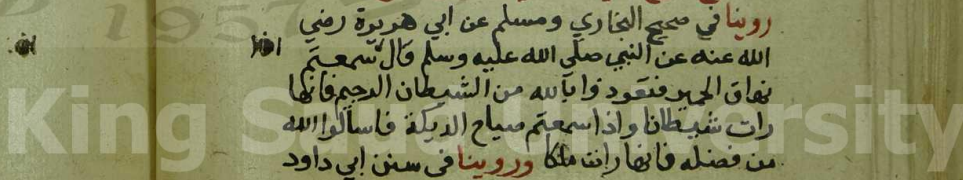 روينا في صحيح البخاري ومسلم عن ابي هريرة رضي
الله عنه عن النبي صلى الله عليه وسلم قال سمعتم
نهاق الحمير فتعوذوا بالله من الشيطان الرجيم فانها
رات شيطانا واذا سمعتم صياح الديكة فاسالوا الله
من فضله فانها رات ملكا وروينا في سنن ابي داود
King Saud University